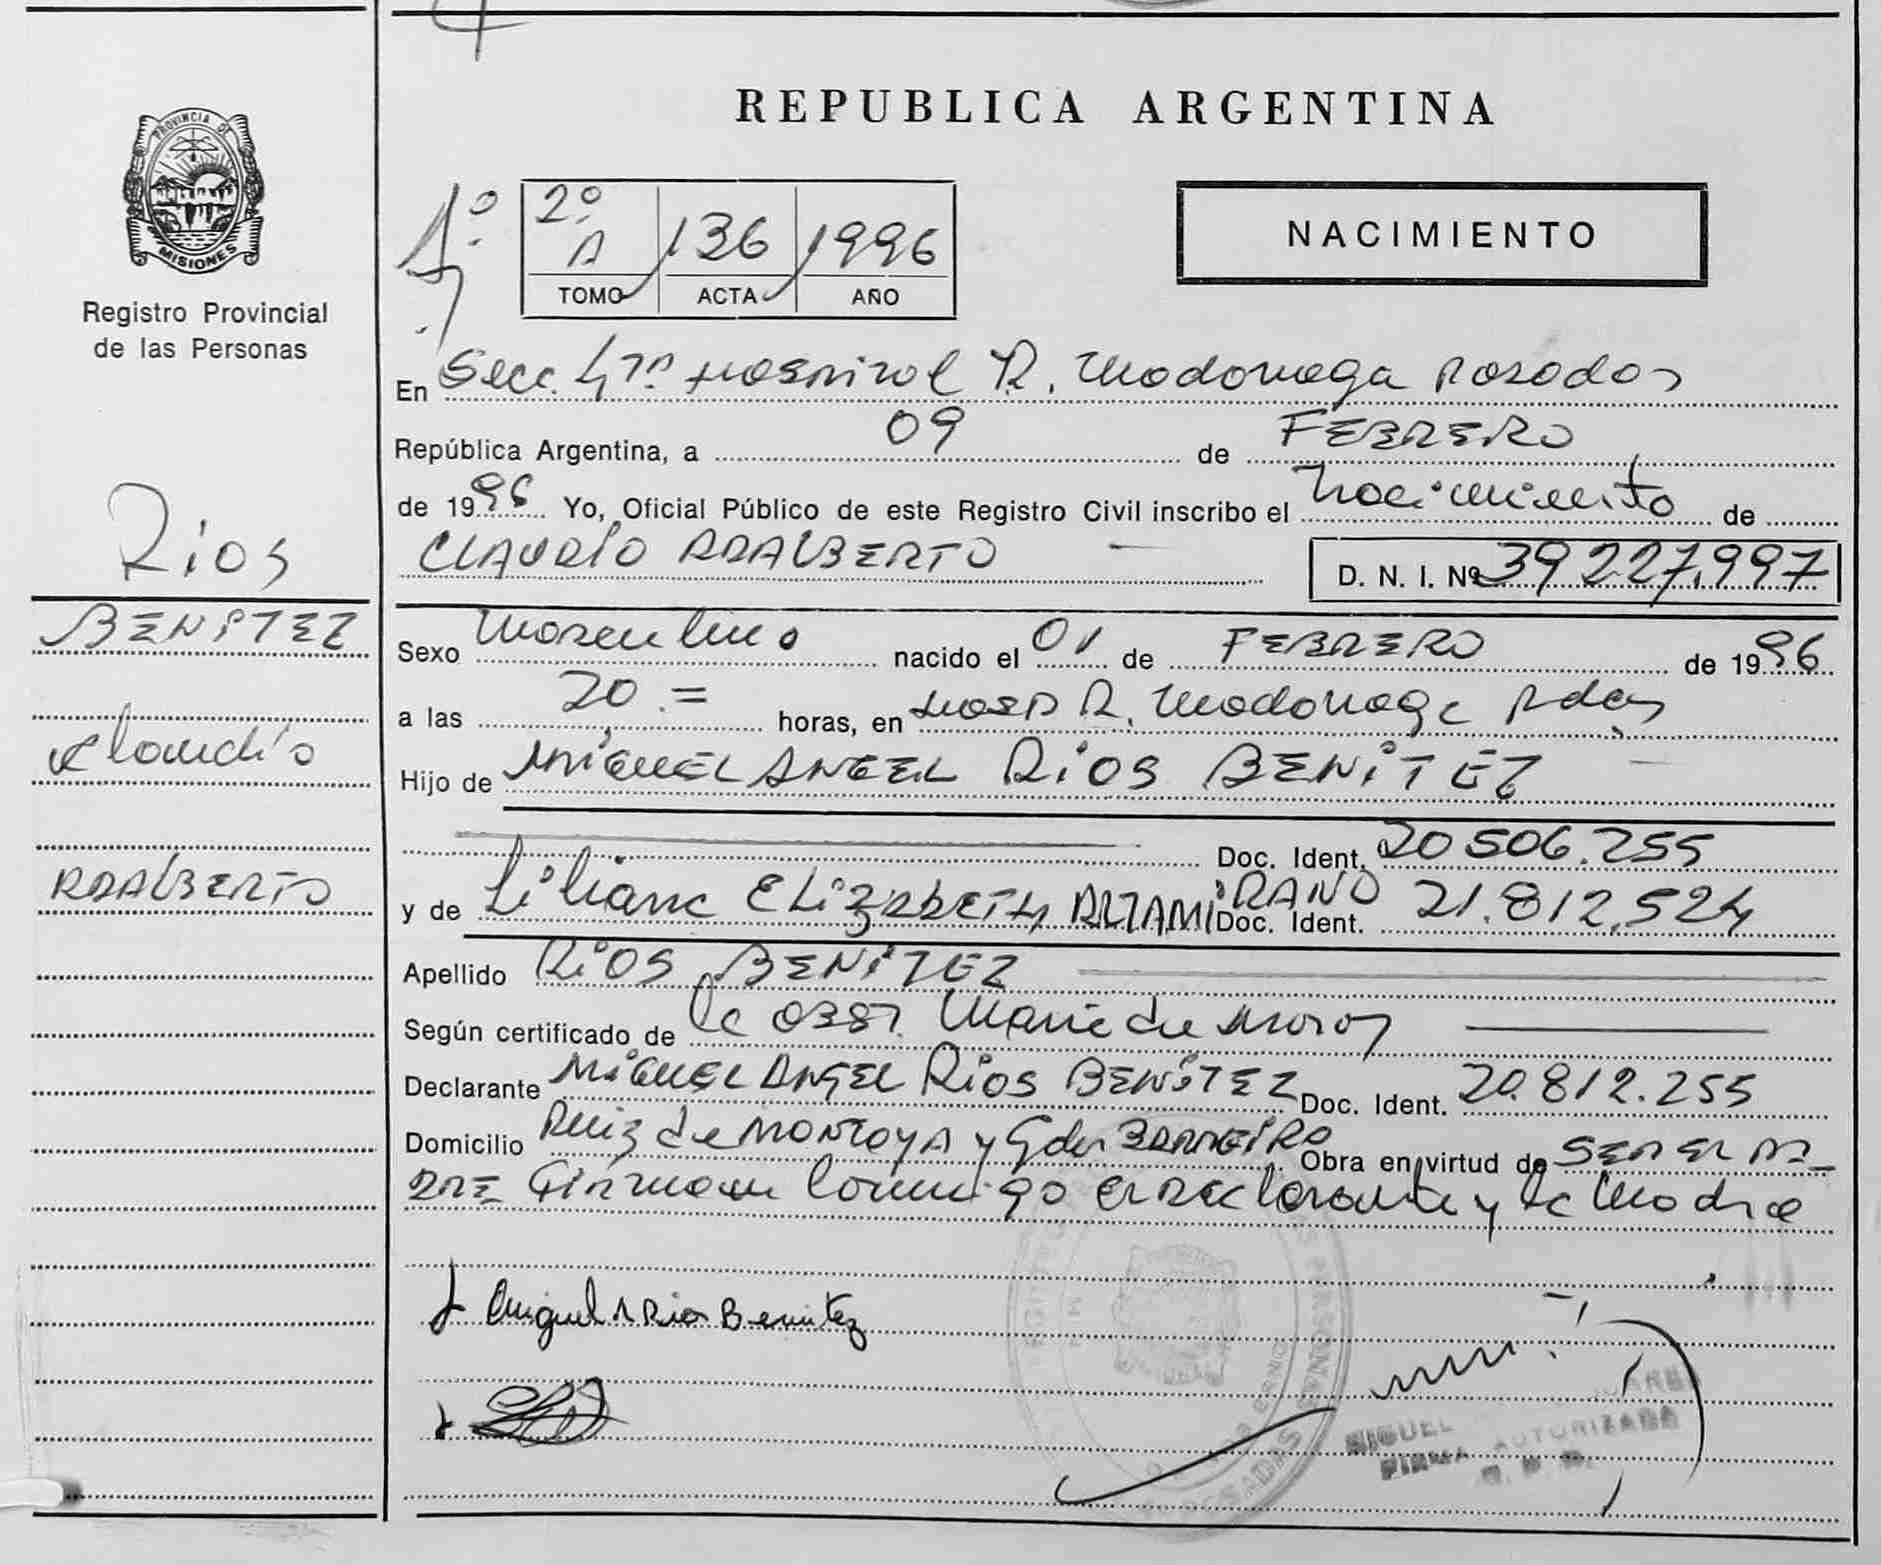 REPUBLICA ARGENTINA
PROVINCIA DE MISIONES
Registro Provincial
de las Personas
1º
2º A 136 1996
TOMO ACTA AÑO
NACIMIENTO
En Secc. 4ta Hospital R. Madariaga Posadas
República Argentina, a 09 de FEBRERO
de 1996 Yo, Oficial Público de este Registro Civil inscribo el nacimiento de
CLAUDIO ADALBERTO — D. N. I. Nº 39227.997
Ríos
BENITEZ
Claudio
ADALBERTO
Sexo Masculino nacido el 01 de FEBRERO de 1996
a las 20.= horas, en Hosp R. Madariaga Pdas
Hijo de MIGUEL ANGEL RIOS BENITEZ —
Doc. Ident. 20506.255
y de Liliana ELIZABETH ALTAMIRANO Doc. Ident. 21.812.524
Apellido RIOS BENITEZ
Según certificado de la obst. Maria de
Declarante MIGUEL ANGEL RIOS BENITEZ Doc. Ident. 20.812.255
Domicilio Ruiz de MONTOYA y Gdor BARREIRO Obra en virtud de SER EL PA-
DRE Firman conmigo el declarante y la Madre
Miguel A Rios Benitez
MIGUEL JUAREZ
FIRMA AUTORIZADA